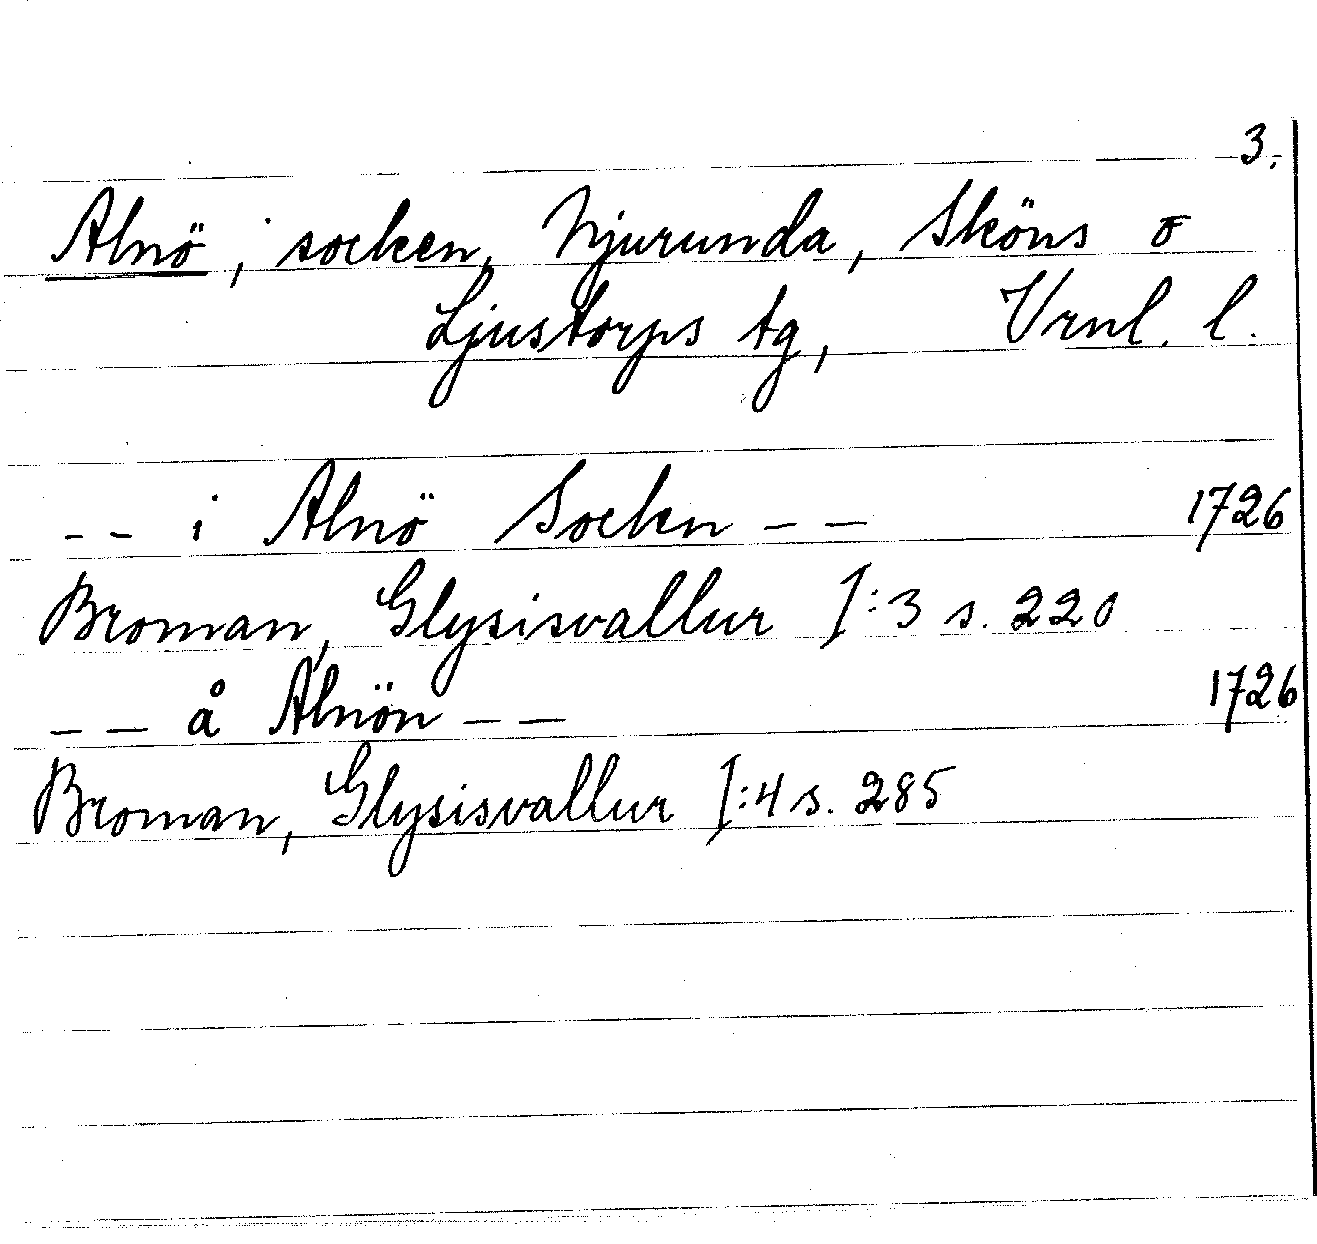 3.
Alnö, socken, Njurunda, Sköns o
Ljustorps tg, Vrnl. l.
-- i Alnö Socken -- 1726
Broman, Glysisvallur I:3 s. 220
-- å Alnön -- 1726
Broman, Glysisvallur I:4 s. 285